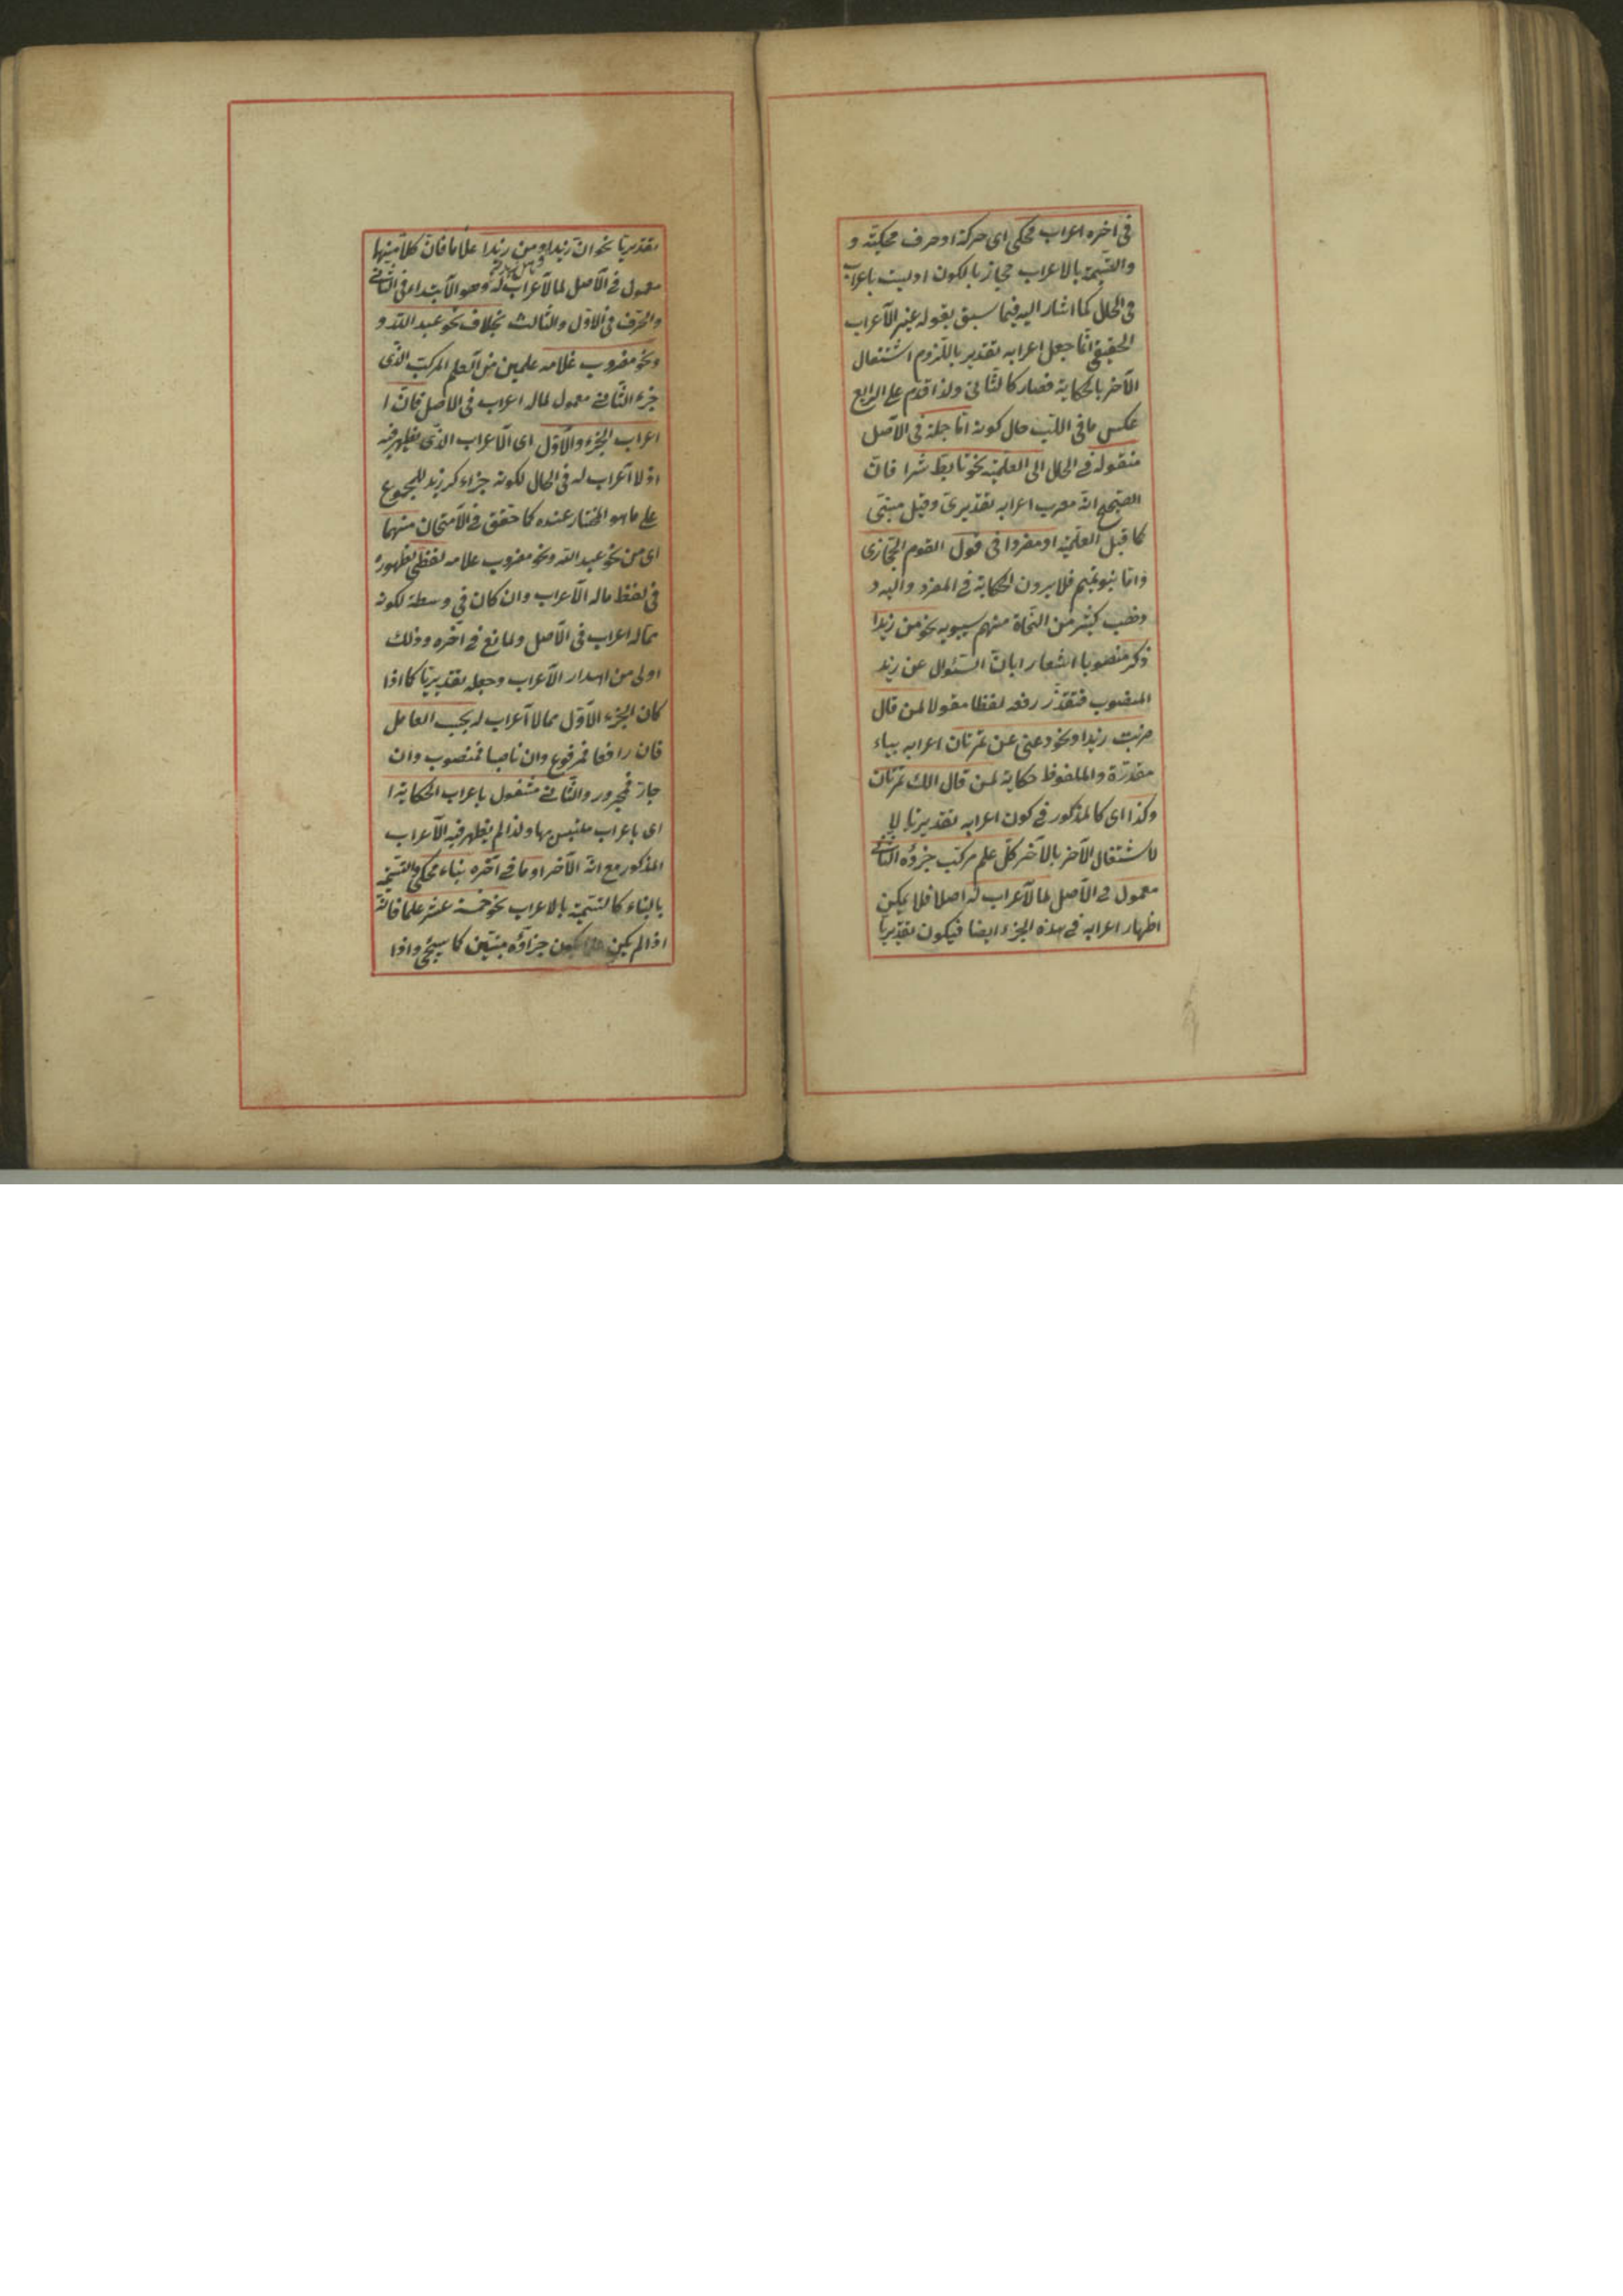 فى اخره اعراب محكى اى حركة او حرف محكية و
والتسمية بالاعراب مجاز بالكون اذ ليست باعراب
فى الحال كما اشار اليه فيما سبق بقوله غير الاعراب
الحقيقى انما جعل اعرابه تقديريا للزوم اشتغال
الآخر بالحكاية فصار كالثانى ولذا قدم على الرابع
عكس ما فى اللب حال كونه اما جملة فى الاصل
منقولة فى الحال الى العلمية نحو تابط شرا فان
الصحيح انه معرب اعرابه تقديرى وقيل مبنى
كما قبل العلمية او مفردا فى قول القوم الحجازى
واما بنو تميم فلا يرون الحكاية فى المفرد واليه
ذهب كثير من النحاة منهم سيبويه نحو من زيدا
ذكر منصوبا اشعارا بان السئوال عن زيد
المنصوب فتقدر رفعه لفظا مقولا لمن قال
ضربت زيدا ونحو دعنى عن تمرتان اعرابه بياء
مقدرة والملفوظ حكاية لمن قال الك تمرتان
وكذا اى كالمذكور فى كون اعرابه تقديريا
لاشتغال الآخر بالآخر كل علم مركب جزؤه الثانى
معمول فى الاصل لما لا اعراب له اصلا فلا يمكن
اظهار اعرابه فى هذه الجزء ايضا فيكون تقديريا
تقديريا نحو ان زيدا ومن زيدا علما فان كلا منها
معمول فى الاصل لما لا اعراب له وهو الابتداء فى الثانى
والحرف فى الاول والثالث بخلاف نحو عبد الله و
ونحو مضروب غلامه علمين من العلم المركب الذى
جزء الثانى معمول لما له اعراب فى الاصل فان ا
اعراب الجزء والاول اى الاعراب الذى يظهر فيه
اذ لا اعراب له فى الحال لكونه جزاء كزيد للمجموع
على ما هو المختار عنده كما حقق فى الامتحان منهما
اى من نحو عبد الله ونحو مضروب غلامه لفظى لظهوره
فى لفظ ما له الاعراب وان كان فى وسطه لكونه
مما له اعراب فى الاصل ولمانع فى آخره وذلك
اولى من اهدار الاعراب وجعله تقديريا كما اذا
كان الجزء الاول مما لا اعراب له بحسب العامل
فان رافعا فمرفوع وان ناصبا فمنصوب وان
جارا فمجرور والثانى مشغول باعراب الحكاية ا
اى باعراب ملتبس بها ولذا لم يظهر فيه الاعراب
المذكور مع انه الآخر او ما فى آخره بناء محكى والتسمية
بالبناء كالتسمية بالاعراب نحو خمسة عشر علما فانه
اذا لم يكن يكون جزاؤه مبنيين كما سيجئ واذا